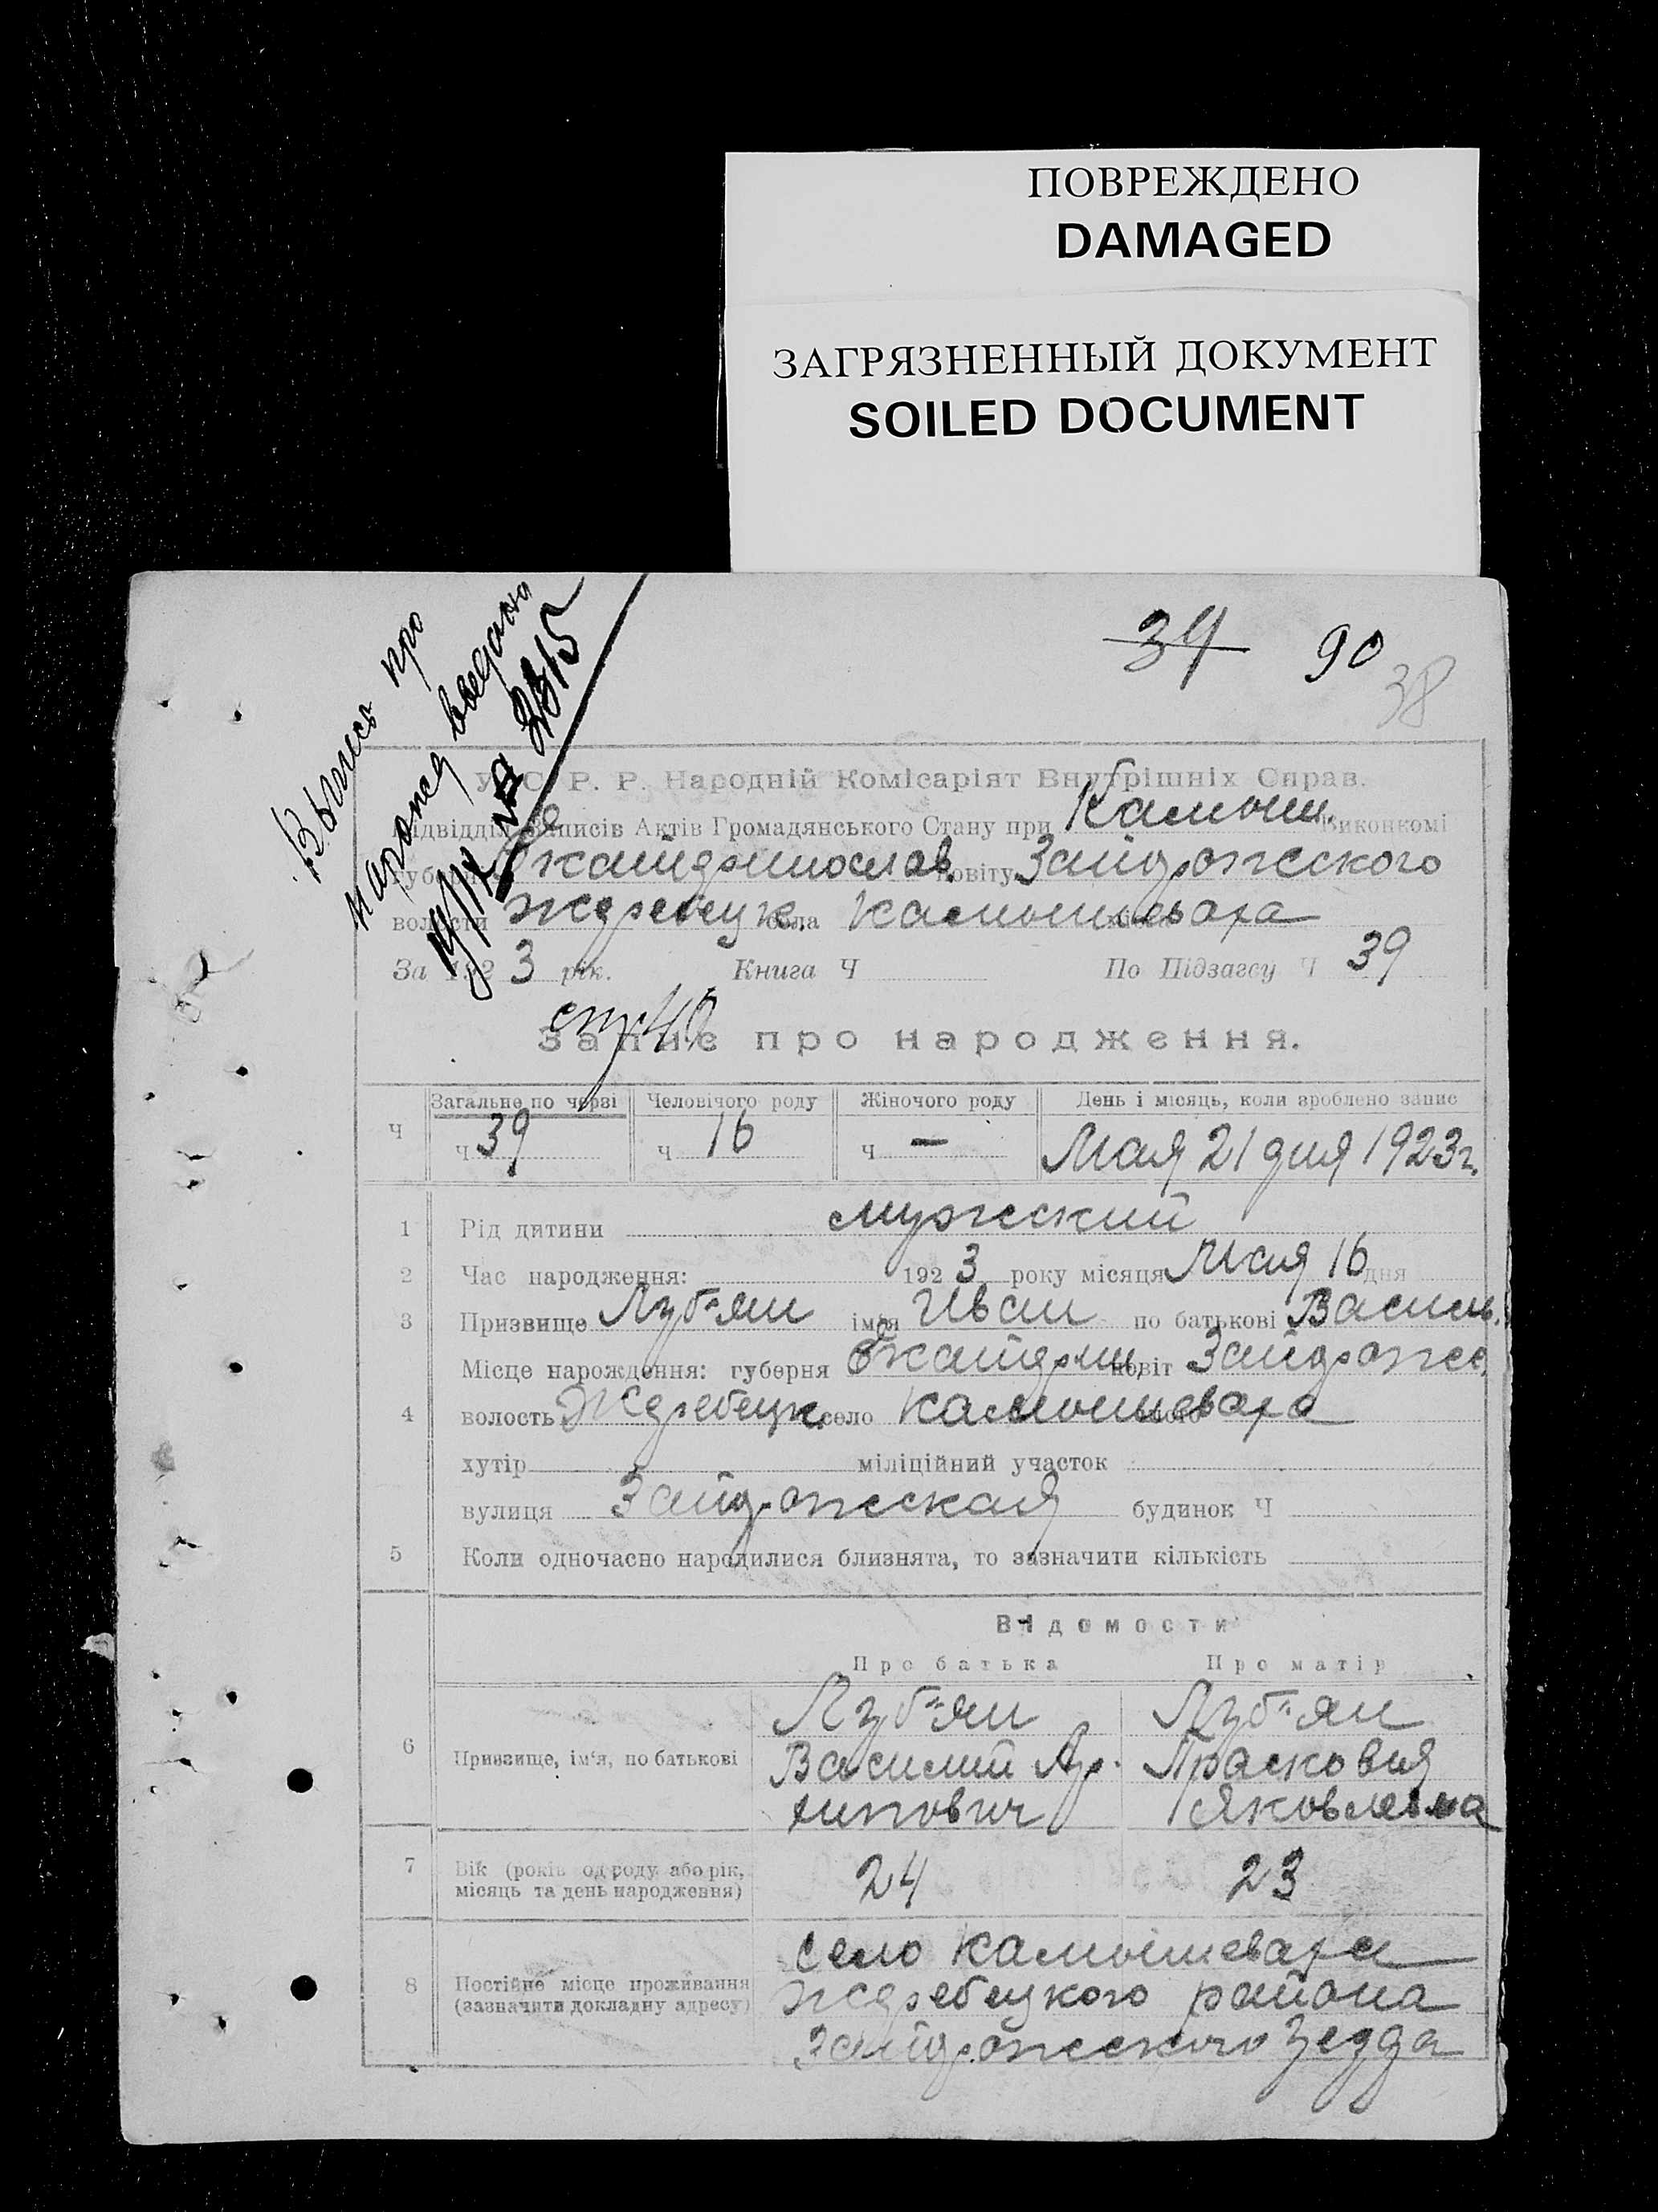 ПОВРЕЖДЕНО
DAMAGED
ЗАГРЯЗНЕННЫЙ ДОКУМЕНТ
SOILED DOCUMENT
34 90
38
Выпись про
У. С. Р. Р. Народній Комісаріят Внутрішніх Справ.
Підвідділ Записів Актів Громадянського Стану при Камыш. Виконкомі
губерні Екатеринослав. повіту Запорожского
волости Жеребецк. села Камышеваха
За 1923 рік. Книга Ч По Підзагсу Ч 39
стр 40
Запис про народження.
Загальне по черзі Человічого роду Жіночого роду День і місяць, коли зроблено запис
Ч ч 39 ч 16 ч — Мая 21 дня 1923 г.
1 Рід дитини мужеский
2 Час народження: 1923 року місяця Мая 16 дня
3 Призвище Луб"ян імя Иван по батькові Василь.
Місце народження: губерня Екатерин. повіт Запорож.
4 волость Жеребецк. село Камышеваха
хутір міліційний участок
вулиця Запорожская будинок Ч
5 Коли одночасно народилися близнята, то зазначити кількість
Відомости
Про батька Про матір
Луб"ян Луб"ян
6 Призвище, ім'я, по батькові Василий Ар- Прасковия
хипович Яковлевна
7 Вік (років од роду або рік, 24 23
місяць та день народження)
село Камышеваха
8 Постійне місце проживання Жеребецкого района
(зазначити докладну адресу) Запорожского уезда